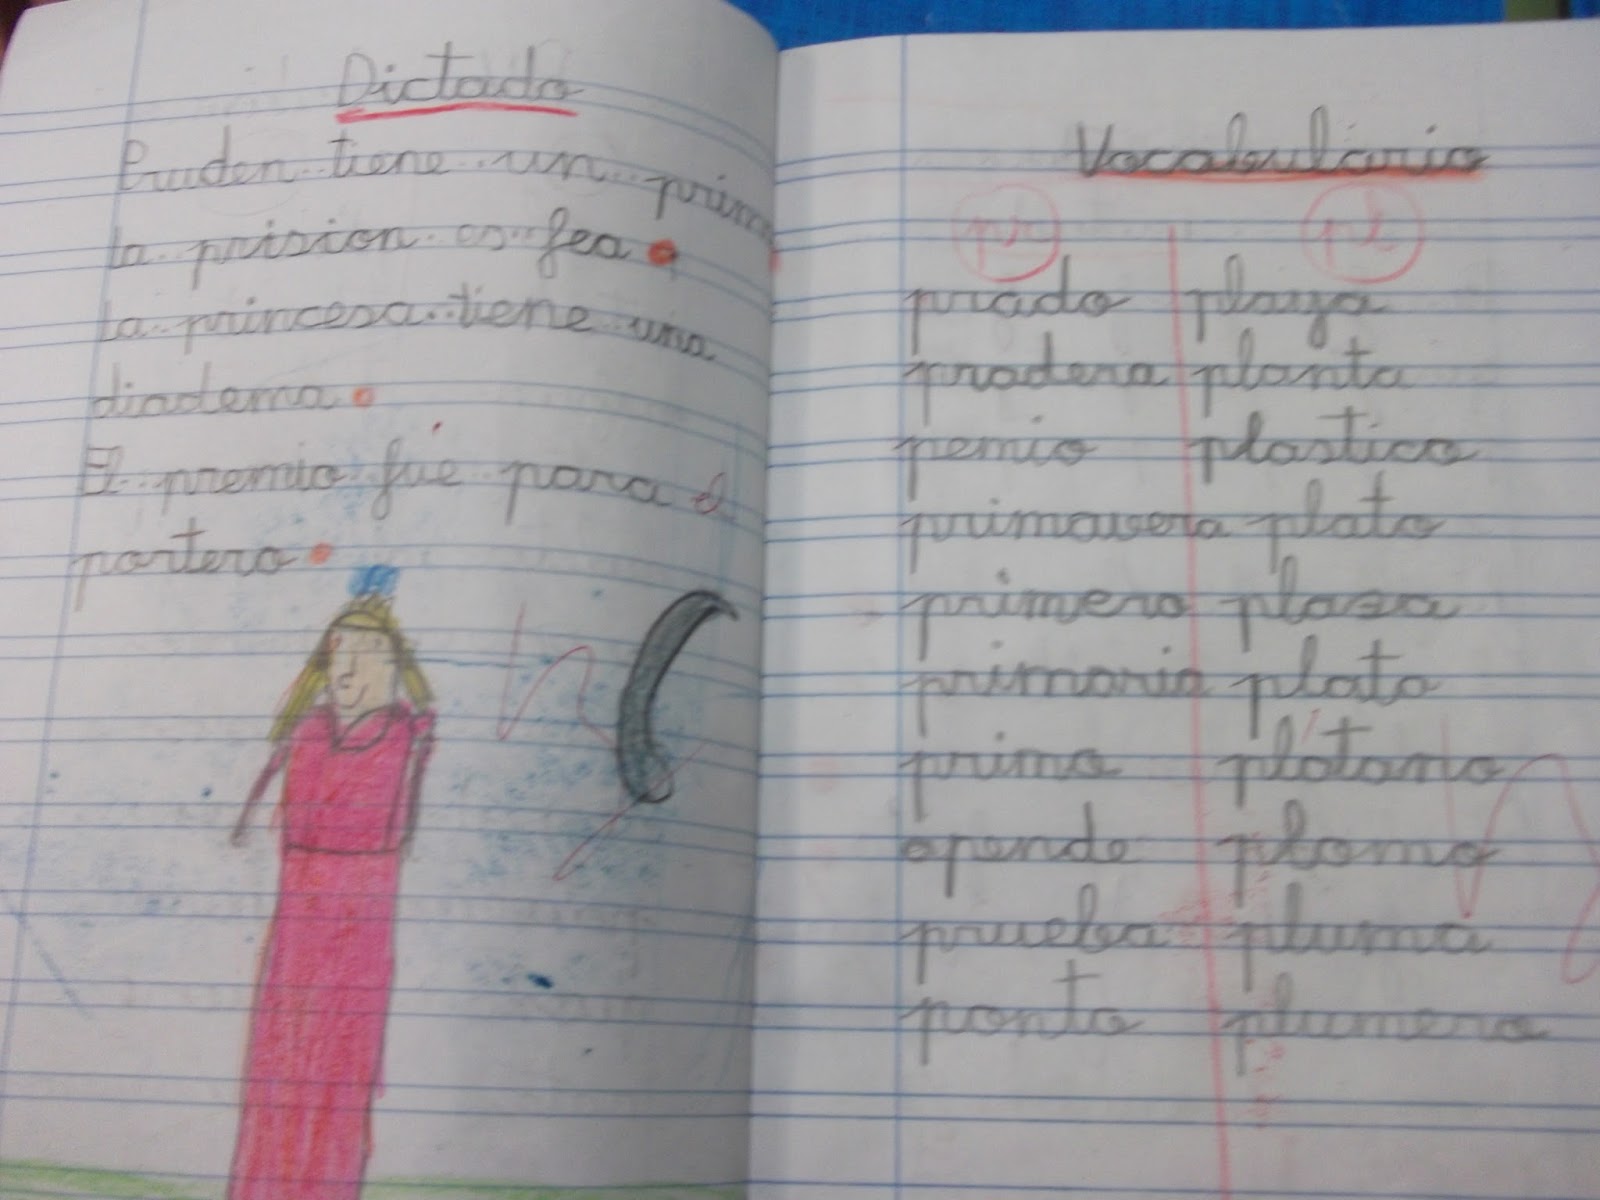 Dictado
Pruden tiene un primo
la prision es fea.
La princesa tiene una
diadema.
El premio fué para el
portero.
Vocabulario
pr pl
prado playa
pradera planta
pemio plastico
primavera plato
primero plaza
primaria plato
primo plátano
apende plomo
prueba pluma
ponto plumero